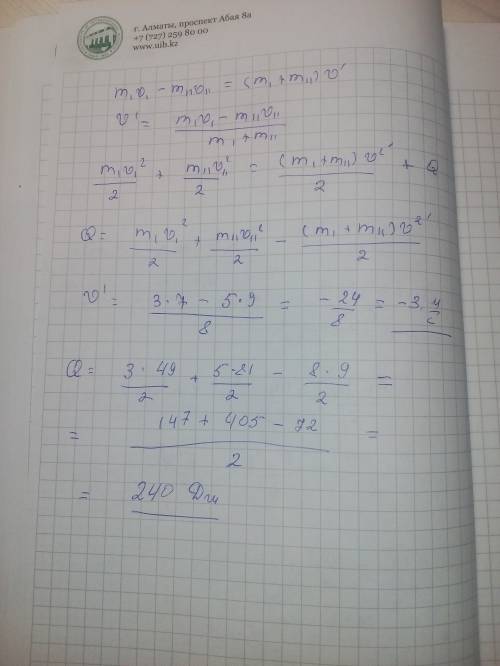 г. Алматы, проспект Абая 8а
+7 (727) 259 80 00
www.uib.kz
m₁v₁ - m₁₁v₁₁ = (m₁ + m₁₁) v'
v' = (m₁v₁ - m₁₁v₁₁) / (m₁ + m₁₁)
m₁v₁²/2 + m₁₁v₁₁²/2 = (m₁ + m₁₁) v²'/2 + Q
Q = m₁v₁²/2 + m₁₁v₁₁²/2 - (m₁ + m₁₁) v²'/2
v' = (3·7 - 5·9)/8 = -24/8 = -3 м/с
Q = 3·49/2 + 5·81/2 - 8·9/2 =
= (147 + 405 - 72)/2 =
= 240 Дж